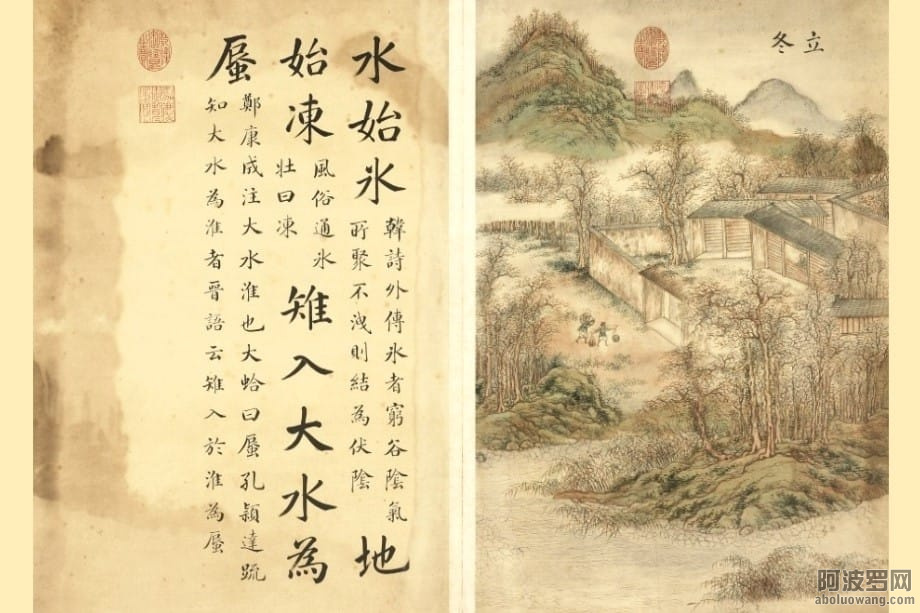 立冬
水始氷
韓詩外傳氷者窮谷陰氣
所聚不洩則結為伏陰
地
始凍
風俗通氷
壯曰凍
雉入大水為
蜃
鄭康成注大水淮也大蛤曰蜃孔穎達疏
知大水為淮者晉語云雉入於淮為蜃
阿波罗网
aboluowang.com